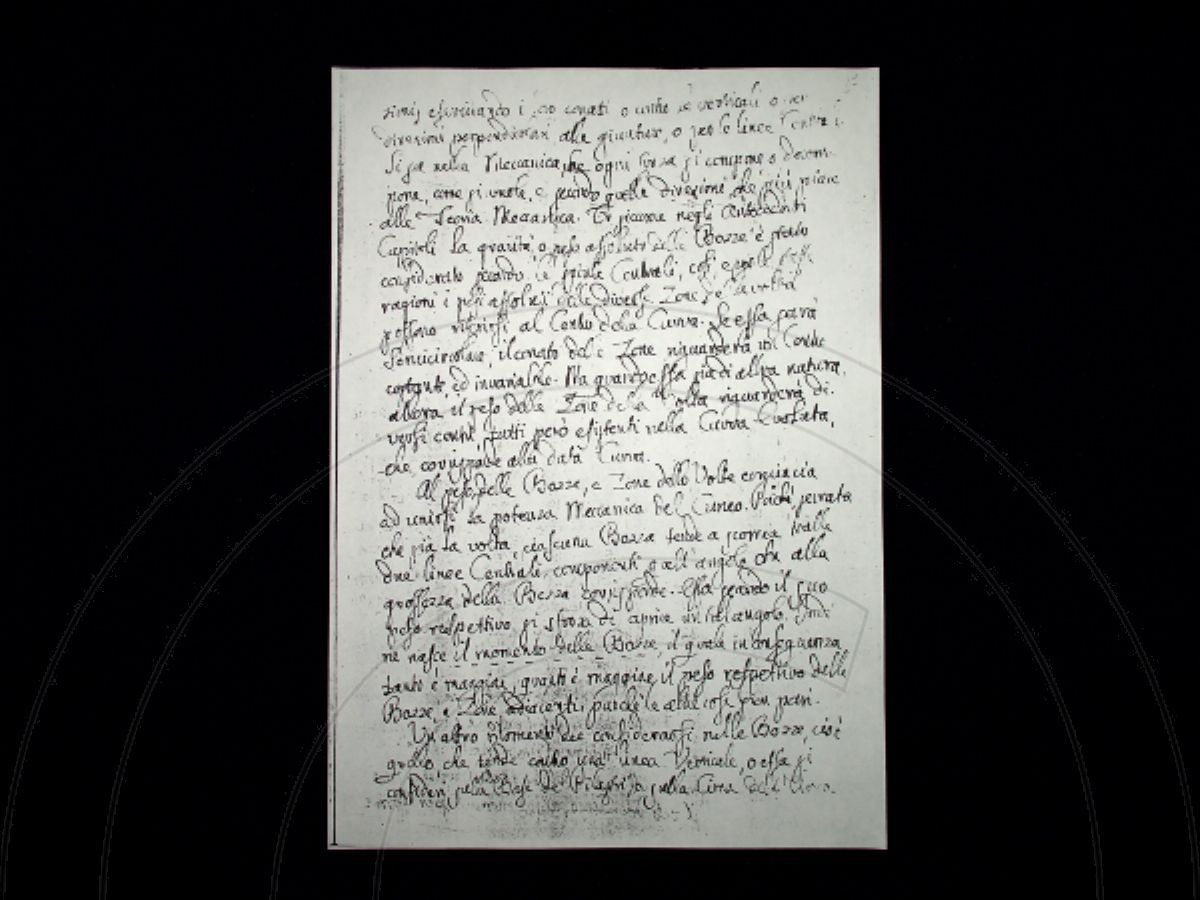 simij esercitando i loro conati o contro le verticali o
direzioni perpendicolari alle giunture, o per le linee Centrali
Si sa nella Meccanica, che ogni forza si compone o decom-
pone, come si vuole, e secondo quelle direzioni che più piace
alla Teoria Meccanica. negli Antecedenti
Capitoli la gravità o peso assoluto delle Bozze è stato
considerato secondo le Centrali, così
ragioni i pesi assoluti delle diverse Zone delle volte
possono riferirsi al Centro della Curva. Se essa sarà
Semicircolare, il conato delle Zone riguarderà un Centro
costante, ed invariabile. Ma quando essa sia di altra natura,
allora il peso delle Zone della Volta riguarderà di-
versi centri, tutti però esistenti nella Curva Evoluta,
che corrisponde alla data Curva.
Al peso delle Bozze, e Zone delle Volte comincia
ad unirsi la potenza Meccanica del Cuneo. Poichè serrata
che sia la volta, ciascuna Bozza tende a scorrere nelle
due linee Centrali, componenti quell'angolo che alla
grossezza della Bozza corrisponde. Essa secondo il suo
peso respettivo si sforza di aprire un tal angolo. Indi
ne nasce il momento delle Bozze, il quale in conseguenza
tanto è maggiore, quanto è maggiore il peso respettivo delle
Bozze, e Zone adiacenti, purchè le altre cose sien pari.
Un altro Momento dee considerarsi nelle Bozze, cioè
quello che tende contro una linea Verticale, o essa si
consideri sulla Base de' Pilastri, o sulla Cima